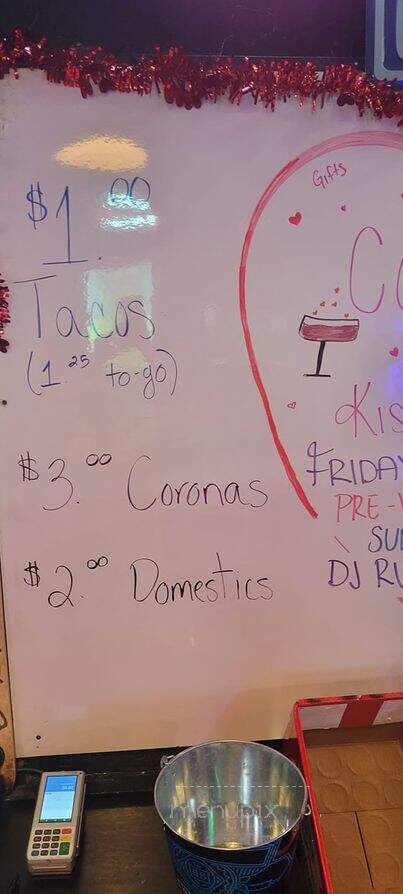 $1.00
Tacos
(1.25 to-go)
$3.00 Coronas
$2.00 Domestics
Gifts
FRIDAY
PRE-
DJ
menupix